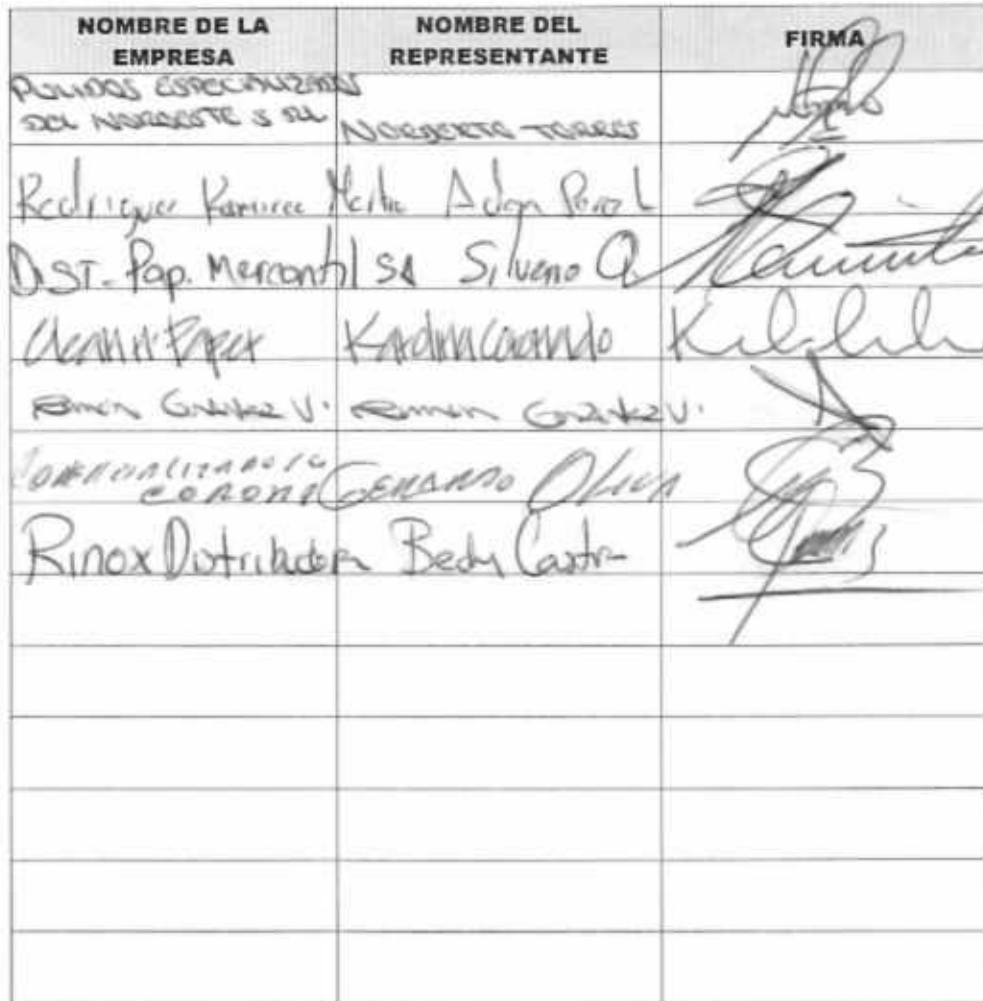 NOMBRE DE LA EMPRESA
NOMBRE DEL REPRESENTANTE
FIRMA
PULIDOS ESPECIALIZADOS
DEL NOROESTE S RL
NORBERTO TORRES
Rodriguez Ramirez Adan Perez L
DIST. Pap. Mercantil SA Silverio Q
Cleanit Paper
Ramon González V. Ramon González V.
COMERCIALIZADORA
CORONA GERARDO Oliva
Rinox Distribuidora Becky Castro